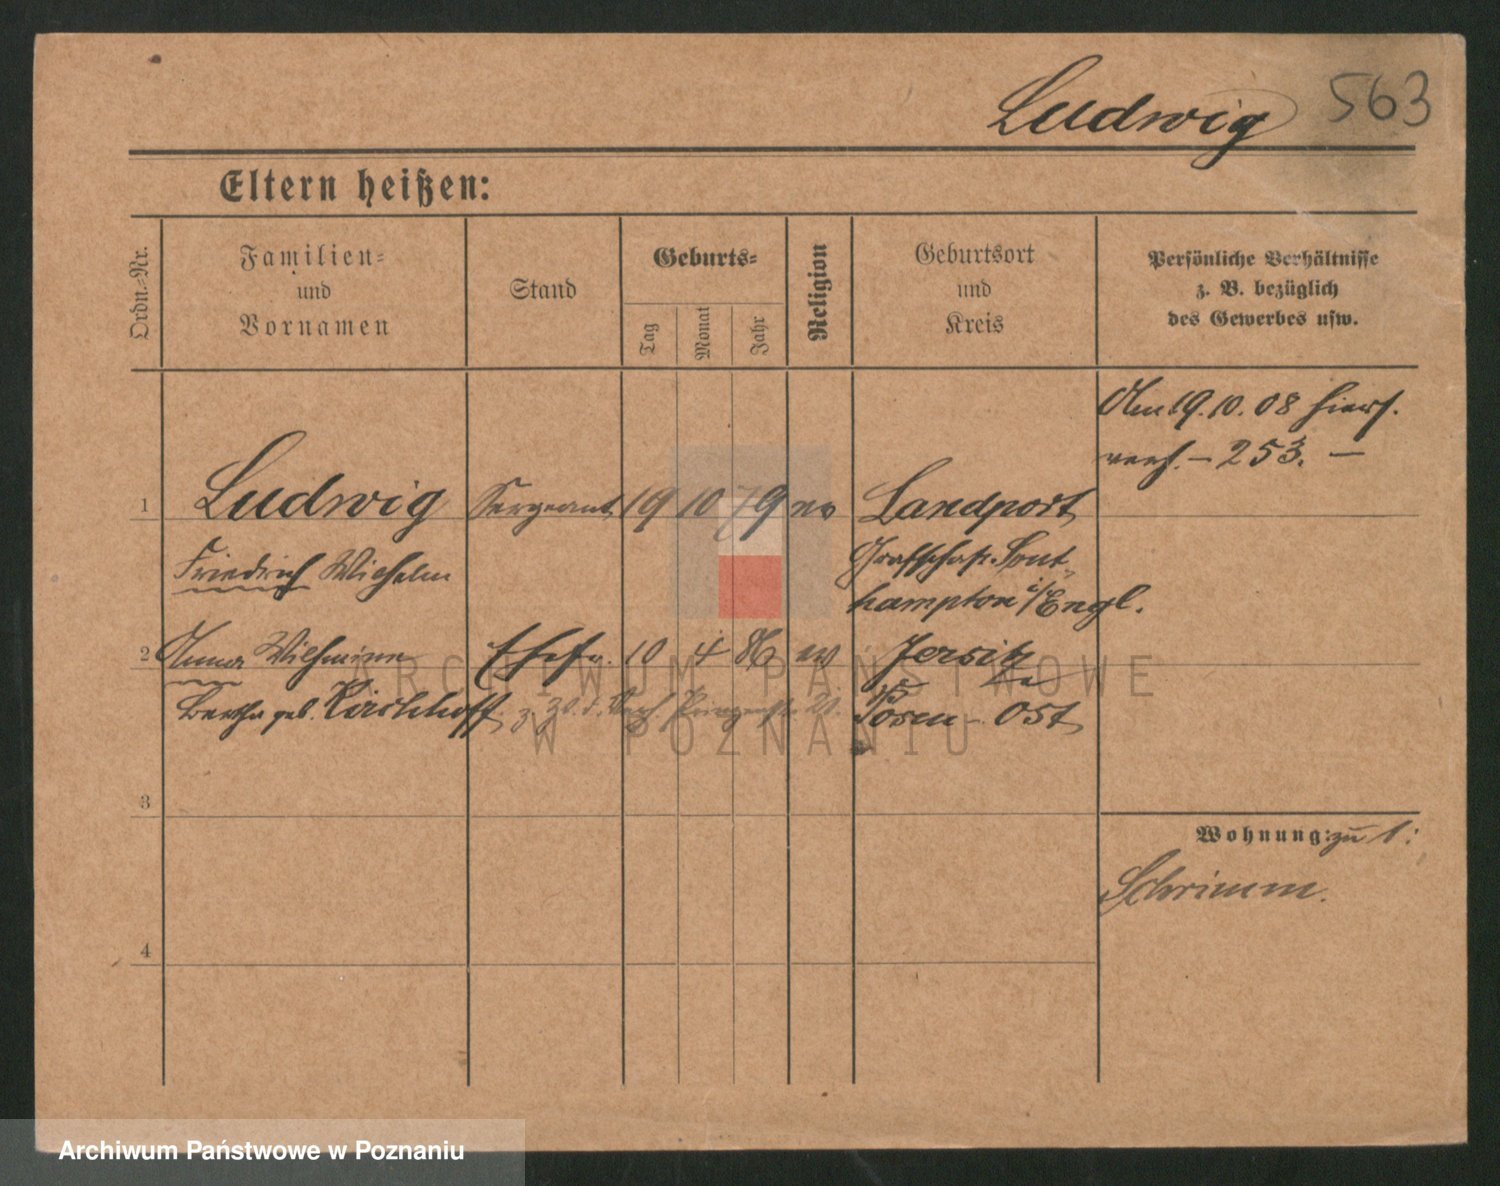 Ludwig 563
Eltern heißen:
Ordn.-Nr.
Familien-
und
Vornamen
Stand
Geburts-
Tag
Monat
Jahr
Religion
Geburtsort
und
Kreis
Persönliche Verhältnisse
z. B. bezüglich
des Gewerbes usw.
Am 19.10.08 hiers.
verh. – 253. —
1 Ludwig Sergeant 19 10 79 ev Landport
Friedrich Wilhelm Grafschaft. Sout-
hampton i/Engl.
2 Anna Wilhelmine Ehefr. 10 4 86 ev Jersitz
Bertha geb. Kirchhoff Posen-Ost
3
Wohnung: zu 1:
Schrimm.
4
ARCHIWUM PAŃSTWOWE
W POZNANIU
Archiwum Państwowe w Poznaniu